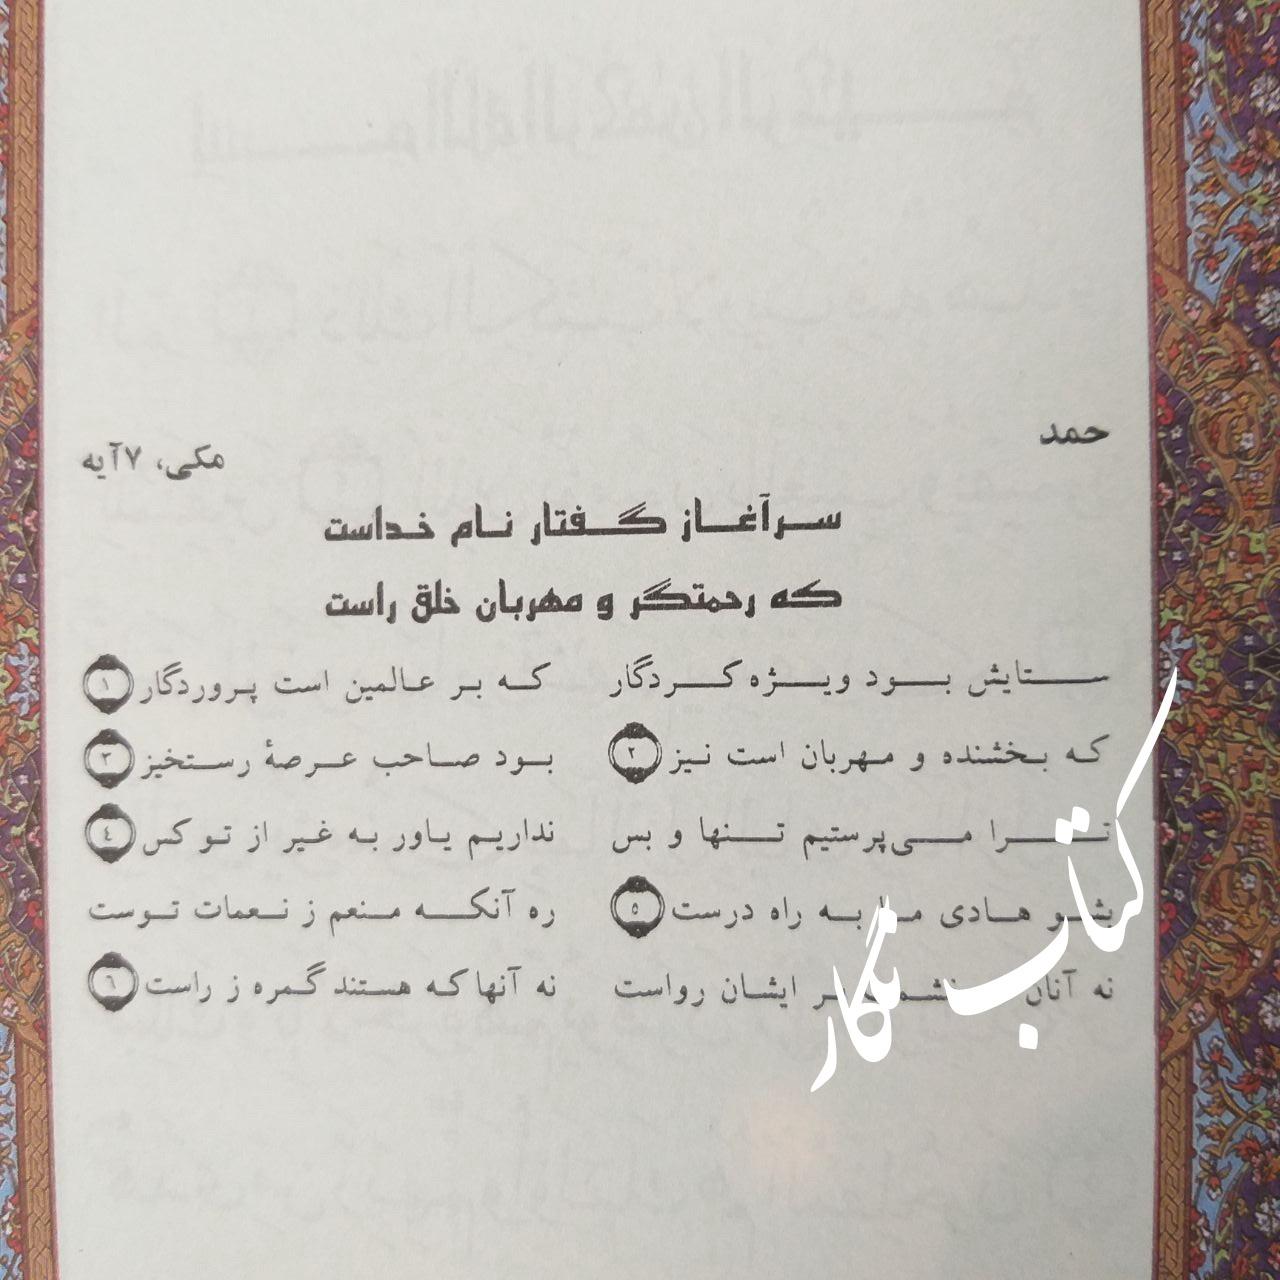 حمد
مکی، ۷ آیه
سرآغاز گفتار نام خداست
که رحمتگر و مهربان خلق راست
ستایش بود ویژه کردگار که بر عالمین است پروردگار ۱
که بخشنده و مهربان است نیز ۲ بود صاحب عرصهٔ رستخیز ۳
ترا می‌پرستیم تنها و بس نداریم یاور به غیر از تو کس ٤
بشو هادی ما به راه درست ٥ ره آنکه منعم ز نعمات توست
نه آنان بر ایشان رواست نه آنها که هستند گمره ز راست ٦
کتاب نگار